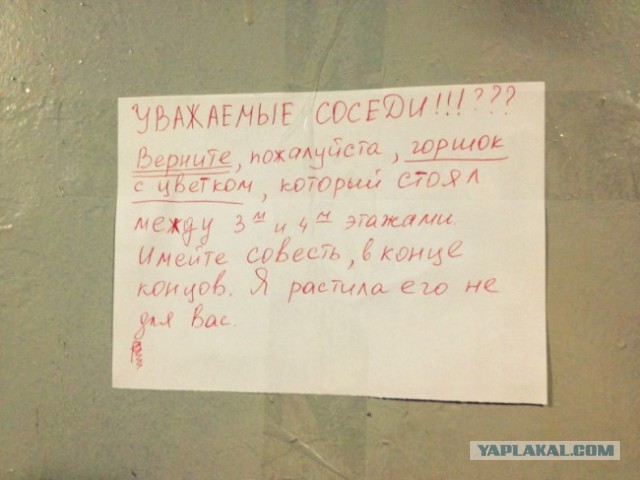 УВАЖАЕМЫЕ СОСЕДИ!!!???
Верните, пожалуйста, горшок
с цветком, который стоял
между 3м и 4м этажами.
Имейте совесть, в конце
концов. Я растила его не
для Вас.
YAPLAKAL.COM